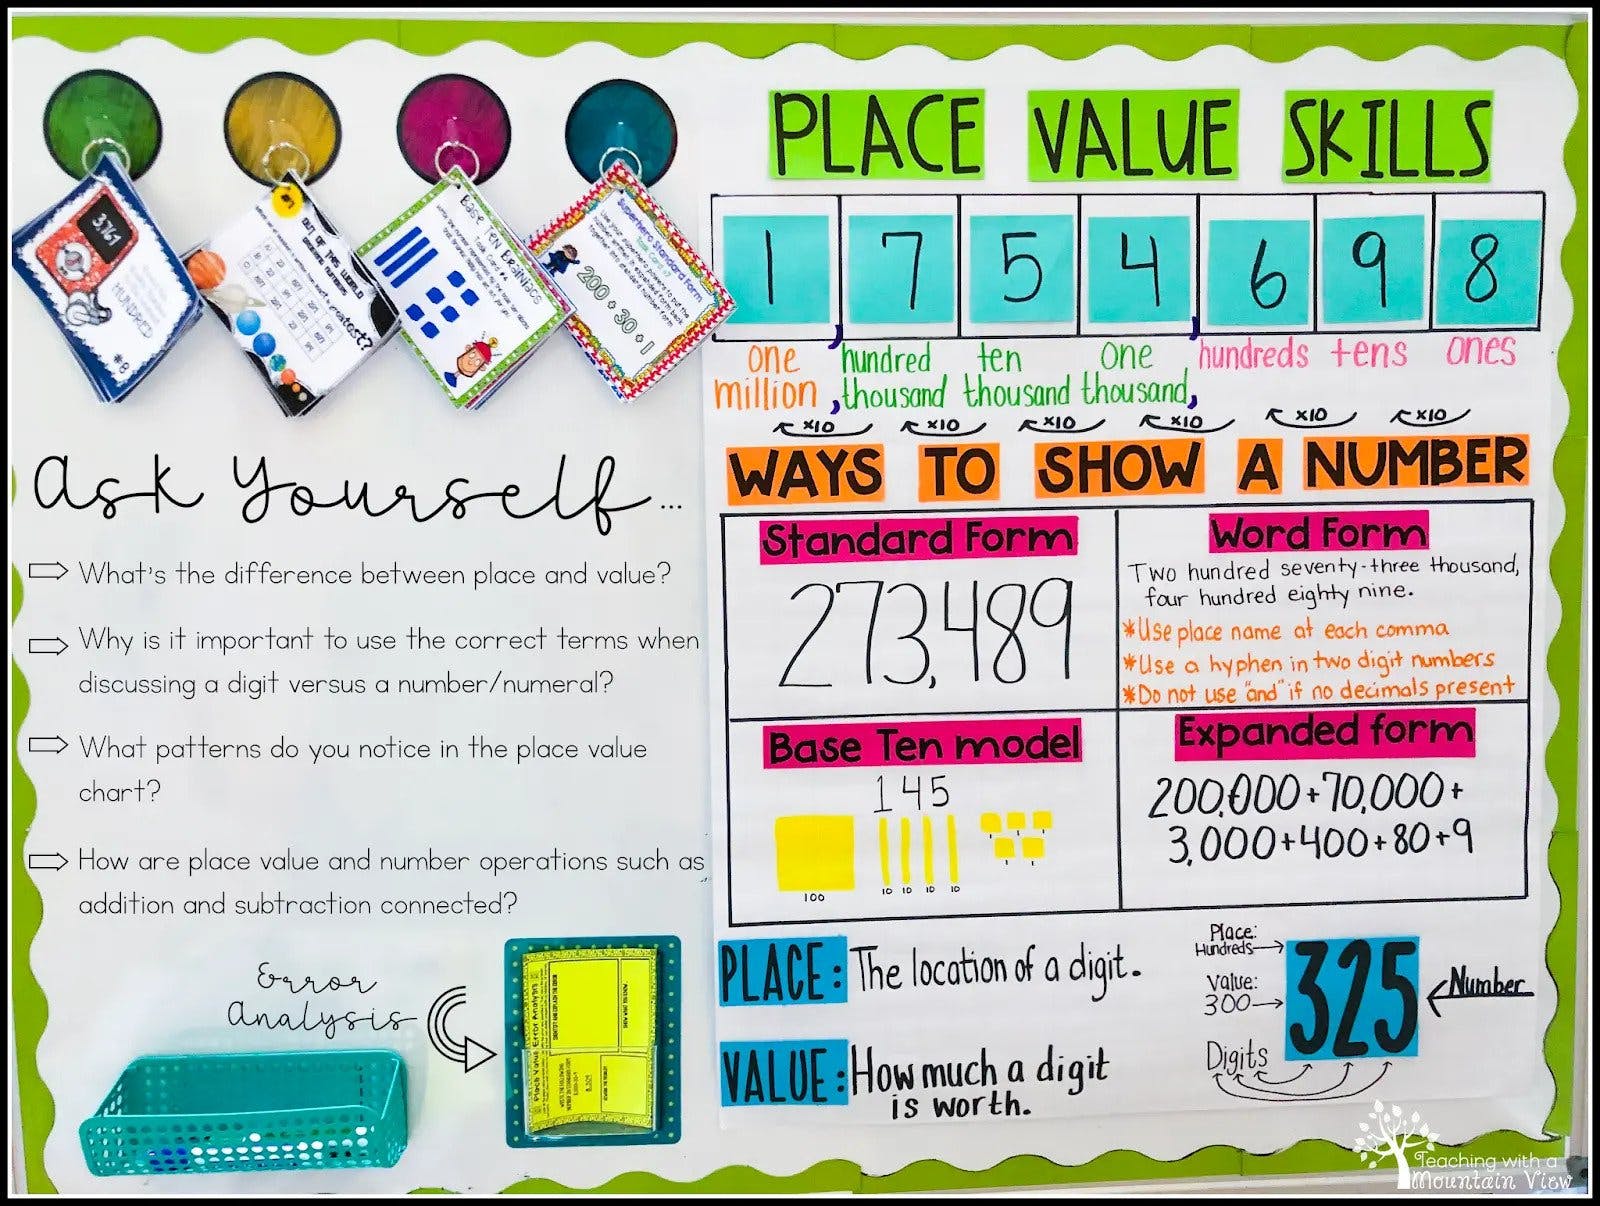 3,767
HUNDRED
#8
#7
OUT OF THIS WORLD
greatest?
BASE TEN BRAINIACS
Task Card #4
Superhero Standard Form
Task Card #7
200 + 30 + 1
Ask Yourself...
What's the difference between place and value?
Why is it important to use the correct terms when
discussing a digit versus a number/numeral?
What patterns do you notice in the place value
chart?
How are place value and number operations such as
addition and subtraction connected?
Error
Analysis
Place Value Error Analysis
PLACE VALUE SKILLS
1 , 7 5 4 , 6 9 8
one million , hundred thousand ten thousand one thousand, hundreds tens ones
x10 x10 x10 x10 x10 x10
WAYS TO SHOW A NUMBER
Standard Form
273,489
Word Form
Two hundred seventy-three thousand,
four hundred eighty nine.
*Use place name at each comma
*Use a hyphen in two digit numbers
*Do not use "and" if no decimals present
Base Ten model
145
100 10 10 10 10 1 1 1 1 1
Expanded form
200,000+70,000+
3,000+400+80+9
PLACE: The location of a digit.
VALUE: How much a digit
is worth.
Place:
Hundreds
Value:
300
Digits
325
Number
Teaching with a
Mountain View